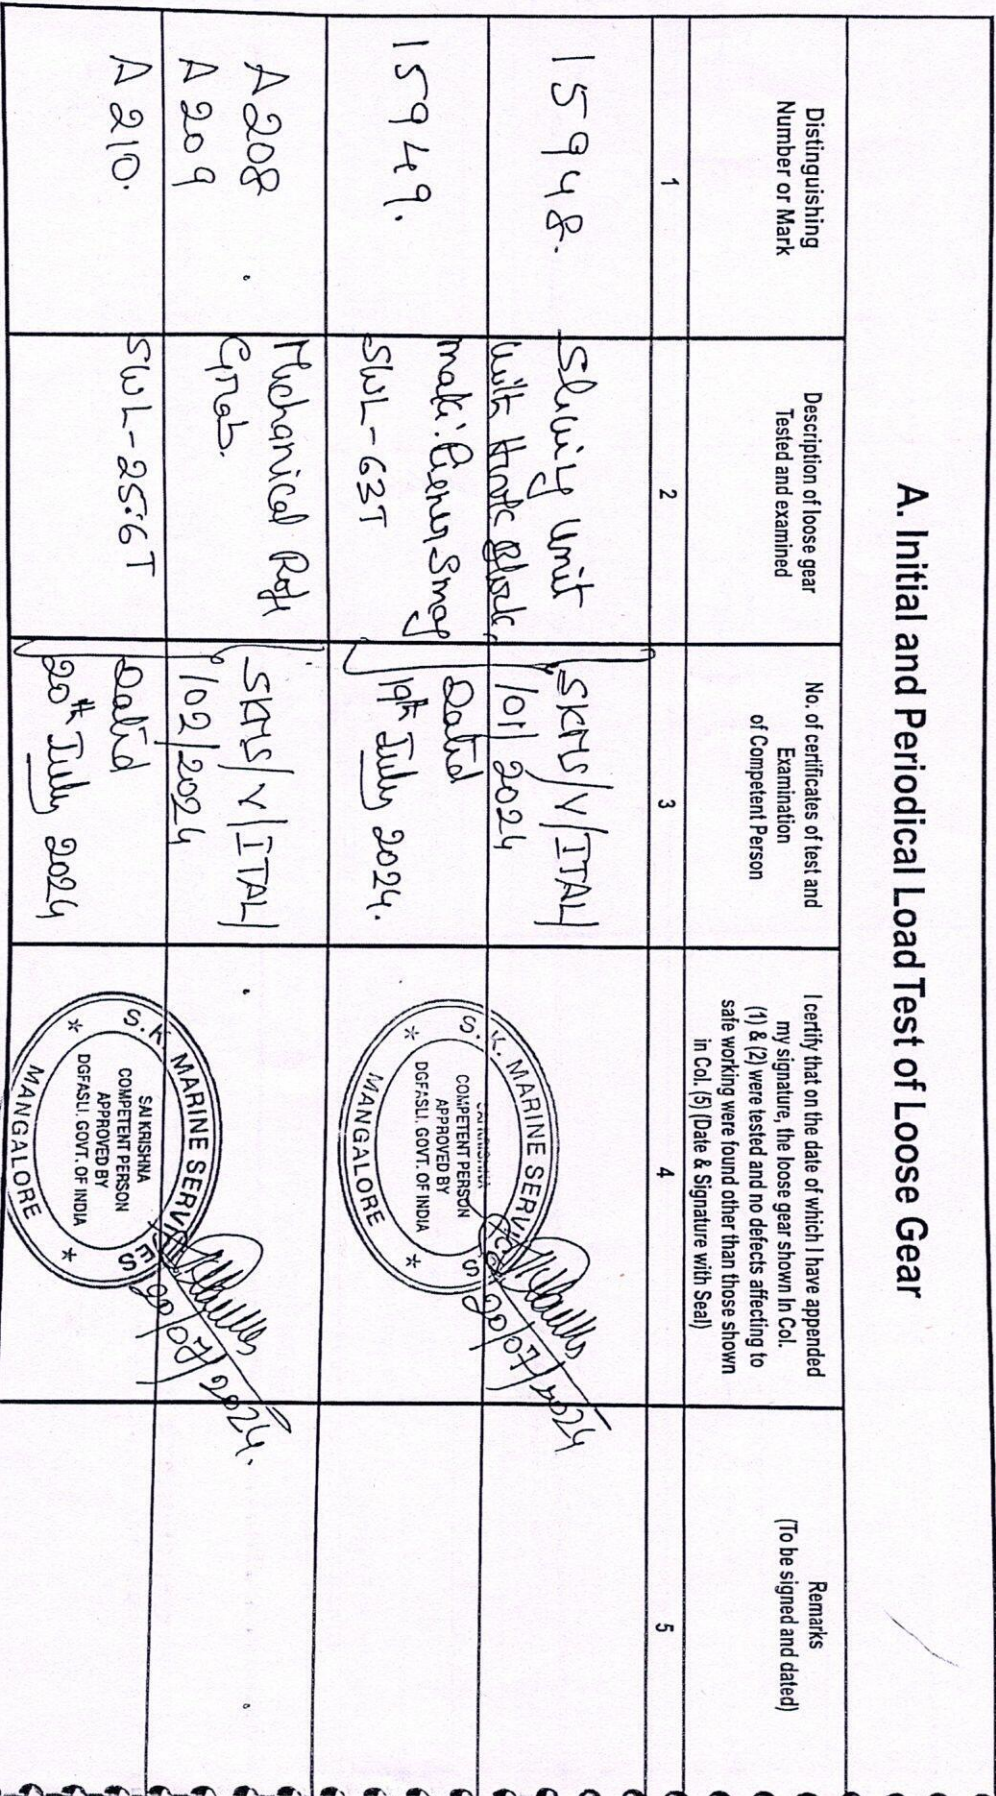 A. Initial and Periodical Load Test of Loose Gear
Distinguishing
Number or Mark
Description of loose gear
Tested and examined
No. of certificates of test and
Examination
of Competent Person
I certify that on the date of which I have appended
my signature, the loose gear shown In Col.
(1) & (2) were tested and no defects affecting to
safe working were found other than those shown
in Col. (5) (Date & Signature with Seal)
Remarks
(To be signed and dated)
1
2
3
4
5
15948.
15949.
Unit
with Block,
SWL-63T
SKMS/V/ITAL/
/01/2024
Dated
19th July 2024.
S. K. MARINE SERVICES
COMPETENT PERSON
APPROVED BY
DGFASLI. GOVT. OF INDIA
MANGALORE
20/07/2024
A 208
A 209
A 210.
Mechanical Rope
Grab.
SWL-25.6T
SKMS/V/ITAL/
/02/2024
Dated
20th July 2024
S. K. MARINE SERVICES
SAI KRISHNA
COMPETENT PERSON
APPROVED BY
DGFASLI. GOVT. OF INDIA
MANGALORE
20/07/2024.